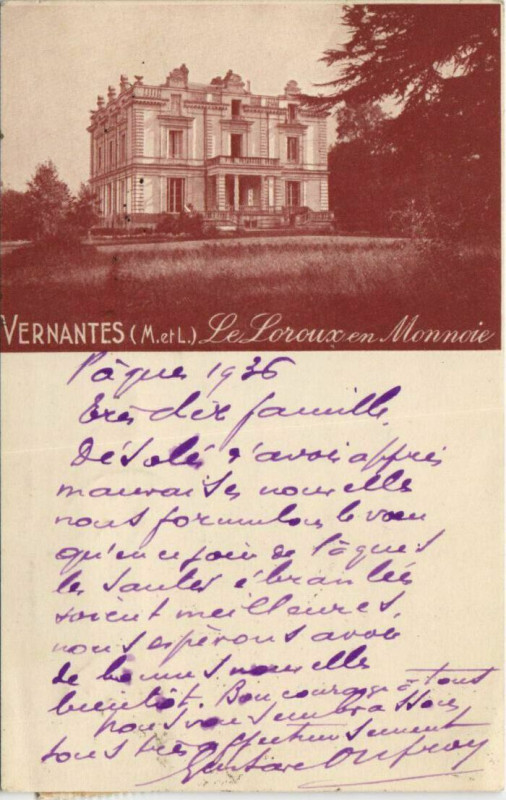 VERNANTES (M. et L.) Le Loroux en Monnoie
Pâques 1936
Très chère famille,
Désolés d'avoir appris
mauvaises nouvelles
nous formulons le vœu
qu'en ce jour de Pâques
les santés ébranlées
soient meilleures,
nous espérons avoir
de bonnes nouvelles
bientôt. Bon courage à tous
nous vous embrassons
tous très affectueusement
Gustave